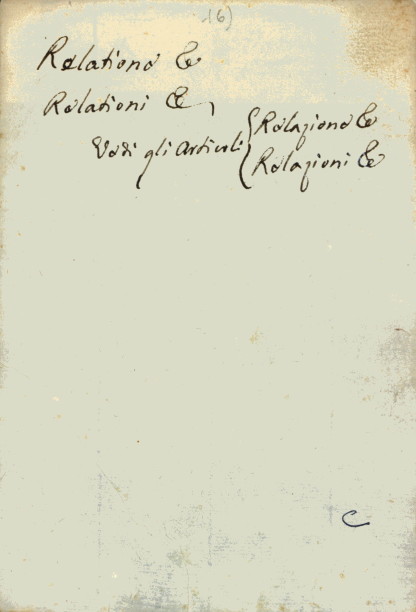 16)
Relatione &c
Relationi &c,
Vedi gli Articoli { Relazione &c
Relazioni &c
C